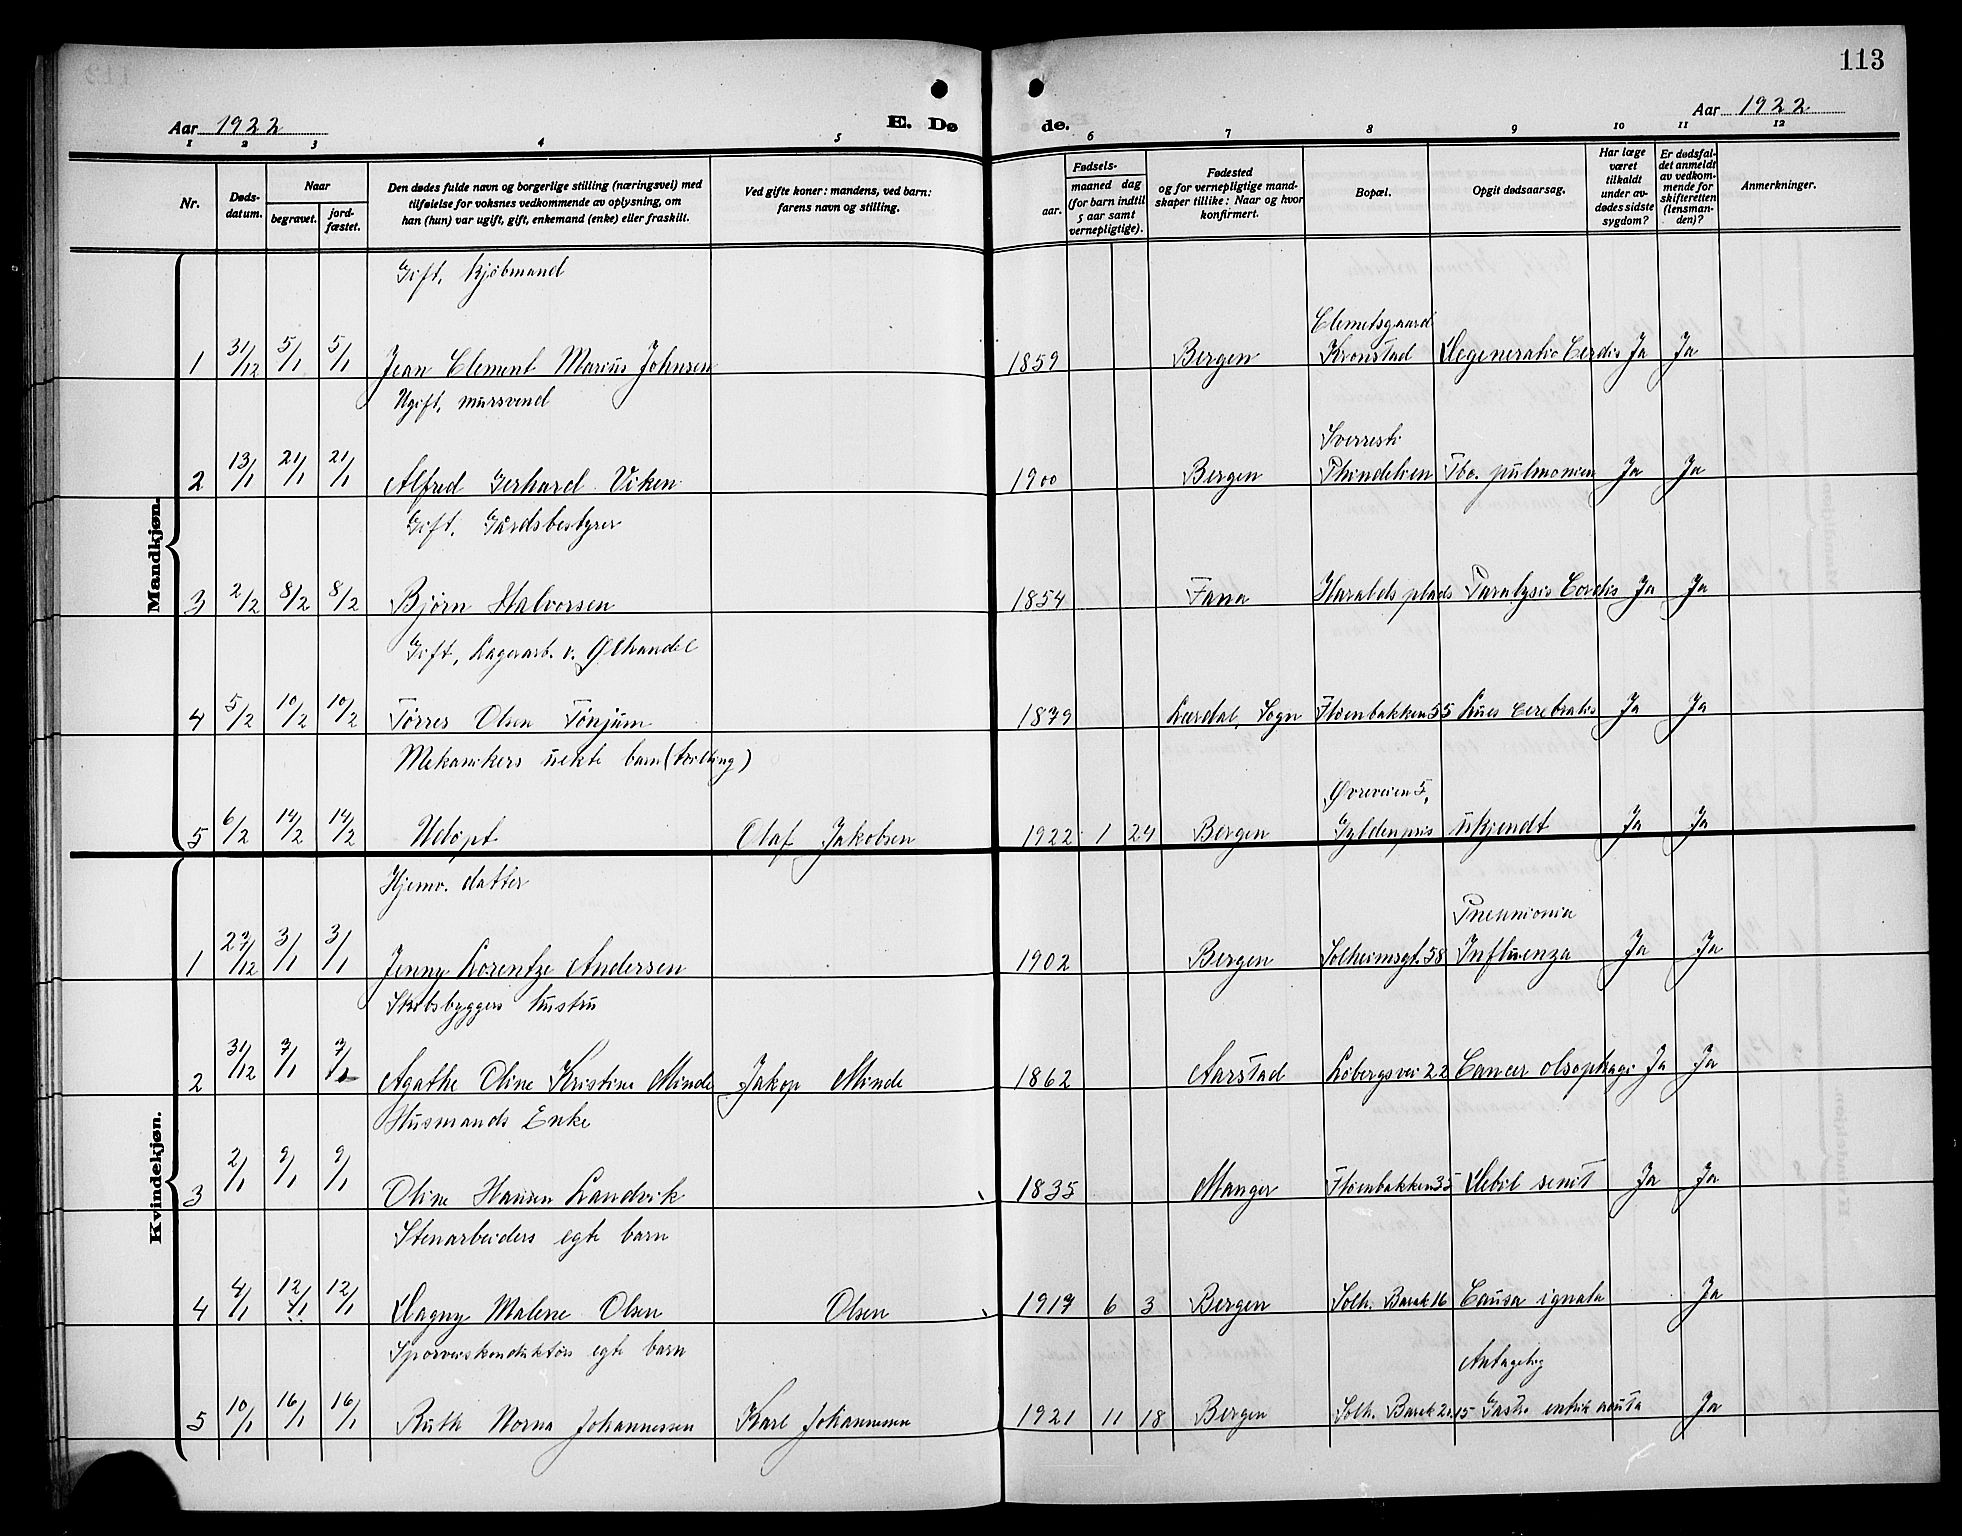 113
Aar 1922
E. Dø
de.
Aar 1922
1 2 3 4 5 6 7 8 9 10 11 12
Nr.
Døds-
datum.
Naar
begravet.
jord-
fæstet.
Den dødes fulde navn og borgerlige stilling (næringsvei) med
tilføielse for voksnes vedkommende av oplysning, om
han (hun) var ugift, gift, enkemand (enke) eller fraskilt.
Ved gifte koner: mandens, ved barn:
farens navn og stilling.
Fødsels-
aar.
maaned dag
(for barn indtil
5 aar samt
vernepligtige).
Fødested
og for vernepligtige mand-
skaper tillike: Naar og hvor
konfirmert.
Bopæl.
Opgit dødsaarsag.
Har læge
været
tilkaldt
under av-
dødes sidste
sygdom?
Er dødsfal-
det anmeldt
av vedkom-
mende for
skifteretten
(lensman-
den)?
Anmerkninger.
Mandkjøn.
Gift, kjøbmand
Clemetsgaard
1 31/12 5/1 5/1 Jean Clement Marius Johnsen 1859 Bergen Kronstad Degeneratio Cordis Ja Ja
Ugift, mursvend
Sverresti
2 13/1 21/1 21/1 Alfred Gerhard Viken 1900 Bergen Tbc. pulmonien Ja Ja
Gift, Gårdsbestyrer
3 2/2 8/2 8/2 Bjørn Halvorsen 1854 Fana Haralds plads Paralysis Cordis Ja Ja
Gift, Lagerarb. v. Ølhandel
4 5/2 10/2 10/2 Tørres Olsen Tønjum 1879 Lærdal, Sogn Fløenbakken 55 Lues Cerebralis Ja Ja
Mekanikers uekte barn (tvilling)
Øvreveien 5,
5 6/2 14/2 14/2 Udöpt Olaf Jakobsen 1922 1 24 Bergen Gyldenpris ukjendt Ja Ja
Kvindekjøn.
Hjemv. datter
Pneumonia
1 27/12 3/1 3/1 Jenny Lorentze Andersen 1902 Bergen Solheimsgt. 58 Influenza Ja Ja
Skibsbyggers hustru
2 31/12 7/1 7/1 Agathe Oline Kristine Minde Jakop Minde 1862 Aarstad Løbergsvei 22 Cancer olsophagi Ja Ja
Husmands Enke
3 2/1 9/1 9/1 Oline Hansen Landvik 1835 Manger Fløenbakken 35 Debil senit Ja Ja
Stenarbeiders egte barn
4 4/1 12/1 12/1 Dagny Malene Olsen Olsen 1917 6 3 Bergen Solh. Barak 16 Causa ignata Ja
Sporveiskonduktørs egte barn
Antagelig
5 10/1 16/1 16/1 Ruth Norna Johannessen Karl Johannessen 1921 11 18 Bergen Solh. Barak 21.15 Gastro entrik acuta Ja